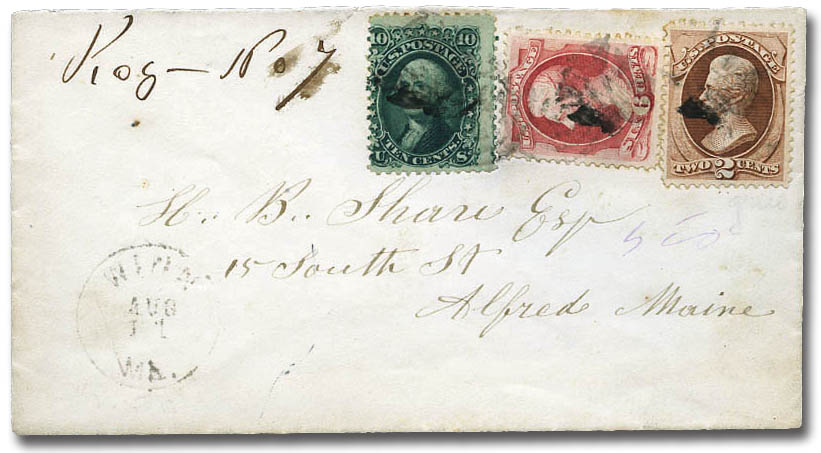 Reg – No 7
10 10
U.S. POSTAGE
TEN CENTS
U. S.
U.S. POSTAGE
SIX CENTS
6
U.S. POSTAGE
TWO 2 CENTS
H. B. Share Esq
15 South St
Alfred Maine
AUG
WA.